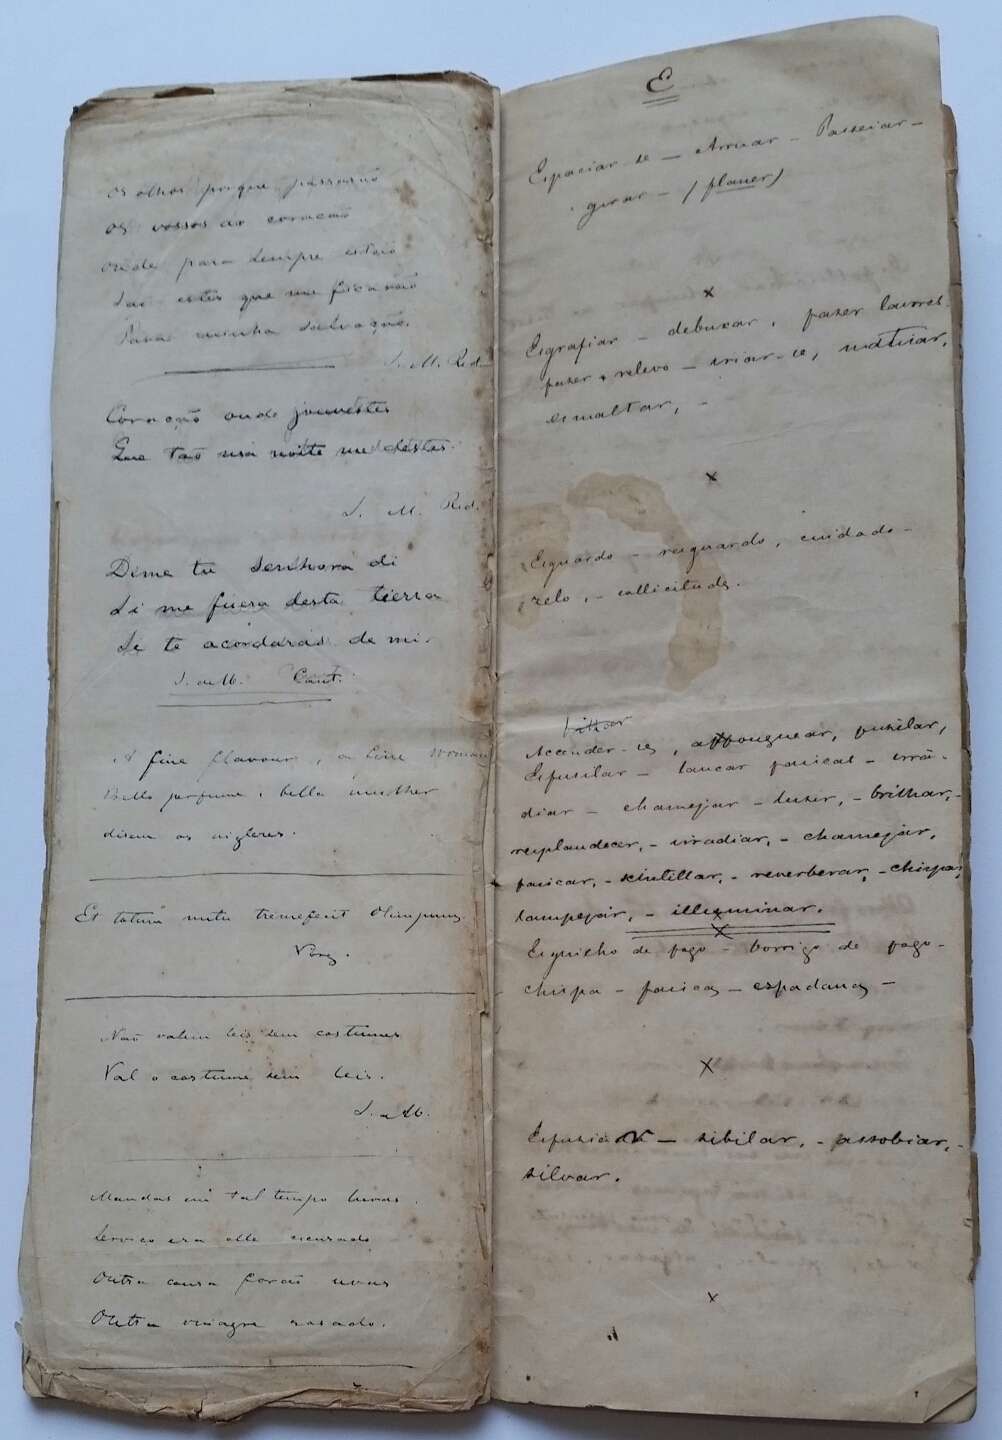 Os olhos porque passarão
Os vossos ao coração
Onde para sempre estão
São estes que me ficarão
Para minha salvação.
S. M. Red.
Coração onde jouvestes
Que tão má noite me déstes.
S. M. Red.
Dime tu senhora di
Si me fuera desta tierra
Se te acordaras de mi.
S. de M. Cant.
A fine flavour, a fine woman
Bello perfume, bella mulher
disem os ingleses.
Et totum nutu tremefecit Olimpum
Virg.
Não valem leis sem costumes
Val o costume sem leis.
S. de M.
Mandas em tal tempo luvas
Serviço era elle escusado
Outra cousa forão uvas
Outra vinagre rosado.
E
Espaciar se — Arruar — Passeiar —
girar — (flaner)
x
Esgrafiar — debuxar, fazer lavores
fazer relevo — iriar-se, matizar,
esmaltar, -
x
Esguardo — resguardo, cuidado —
zelo, - sollicitude.
x
Accender-se, affoguear, fuzilar,
Esfusilar — lancar faiscas — irra-
diar — chamejar — luzer, - brilhar, -
resplandecer, - irradiar, - chamejar,
faiscar, - scintillar, - reverberar, - chispar,
lampejar, - illuminar.
x
Esguicho de fogo — borrigo de fogo —
chispa — faisca — espadana —
x
Esfusiar — sibilar, - assobiar, -
silvar.
x